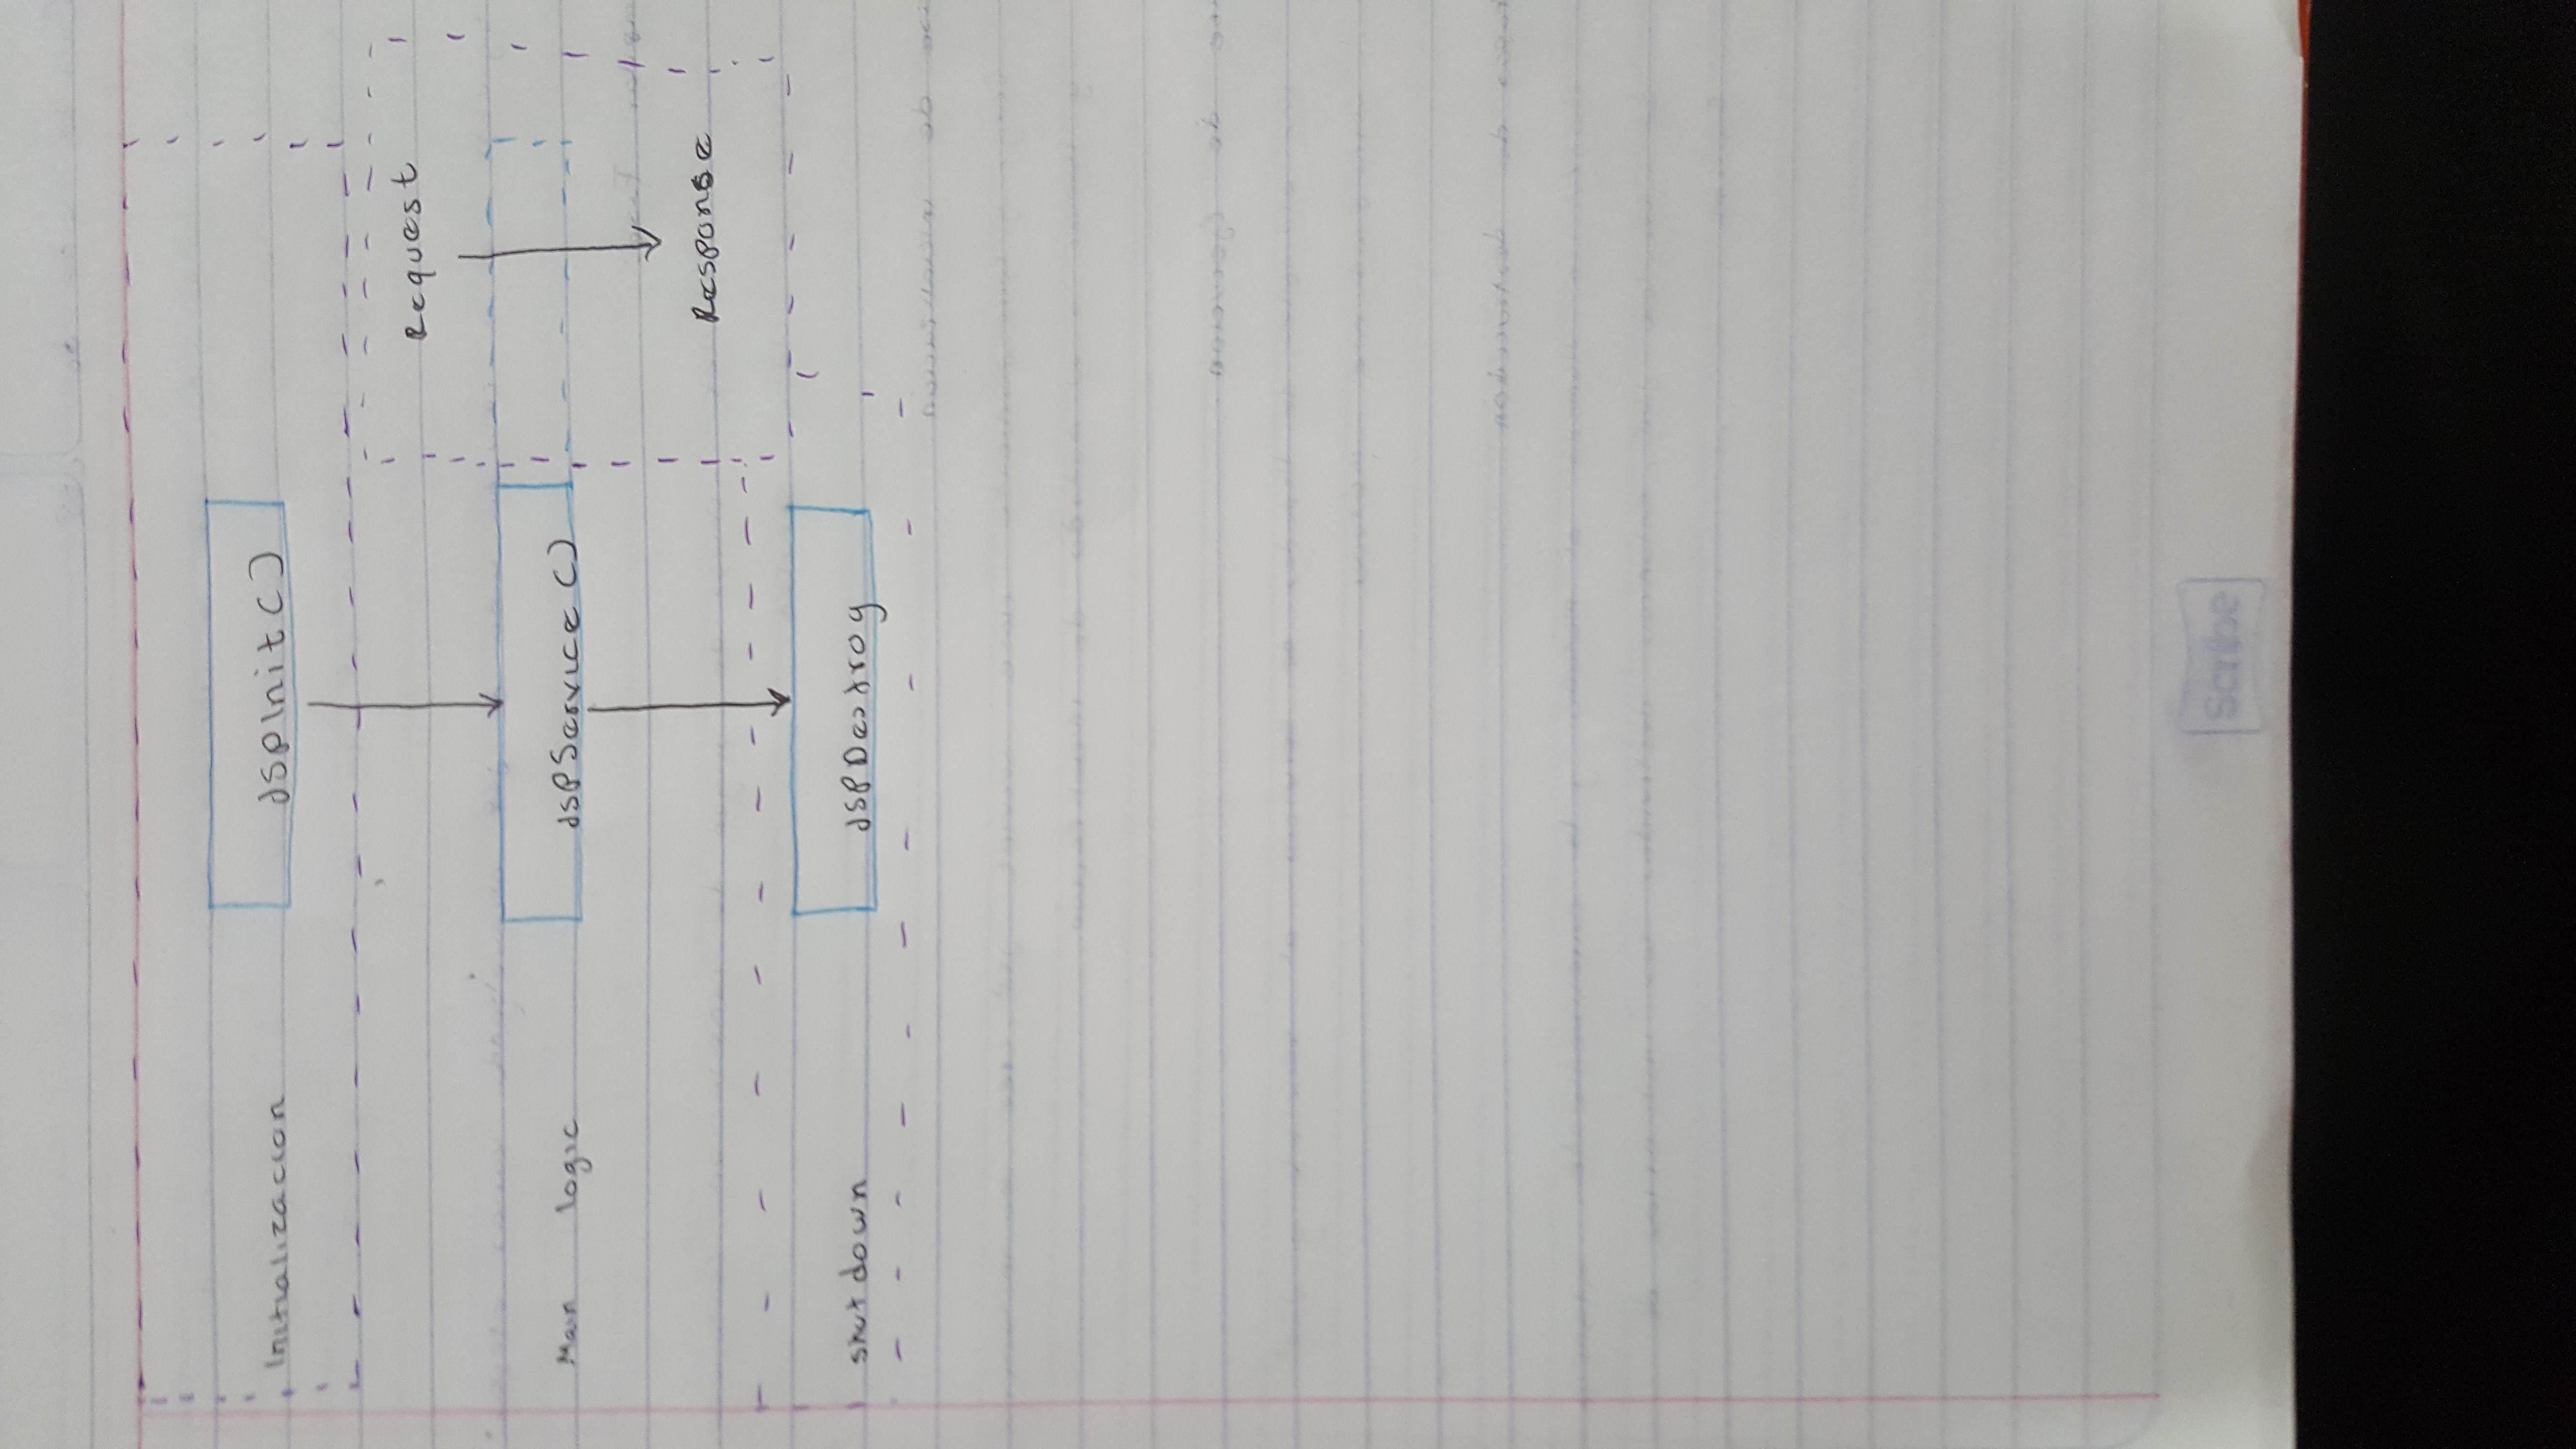 Initializacion
JSPInit()
Request
Main logic
JSPService()
Response
shutdown
JSPDestroy
Scribe